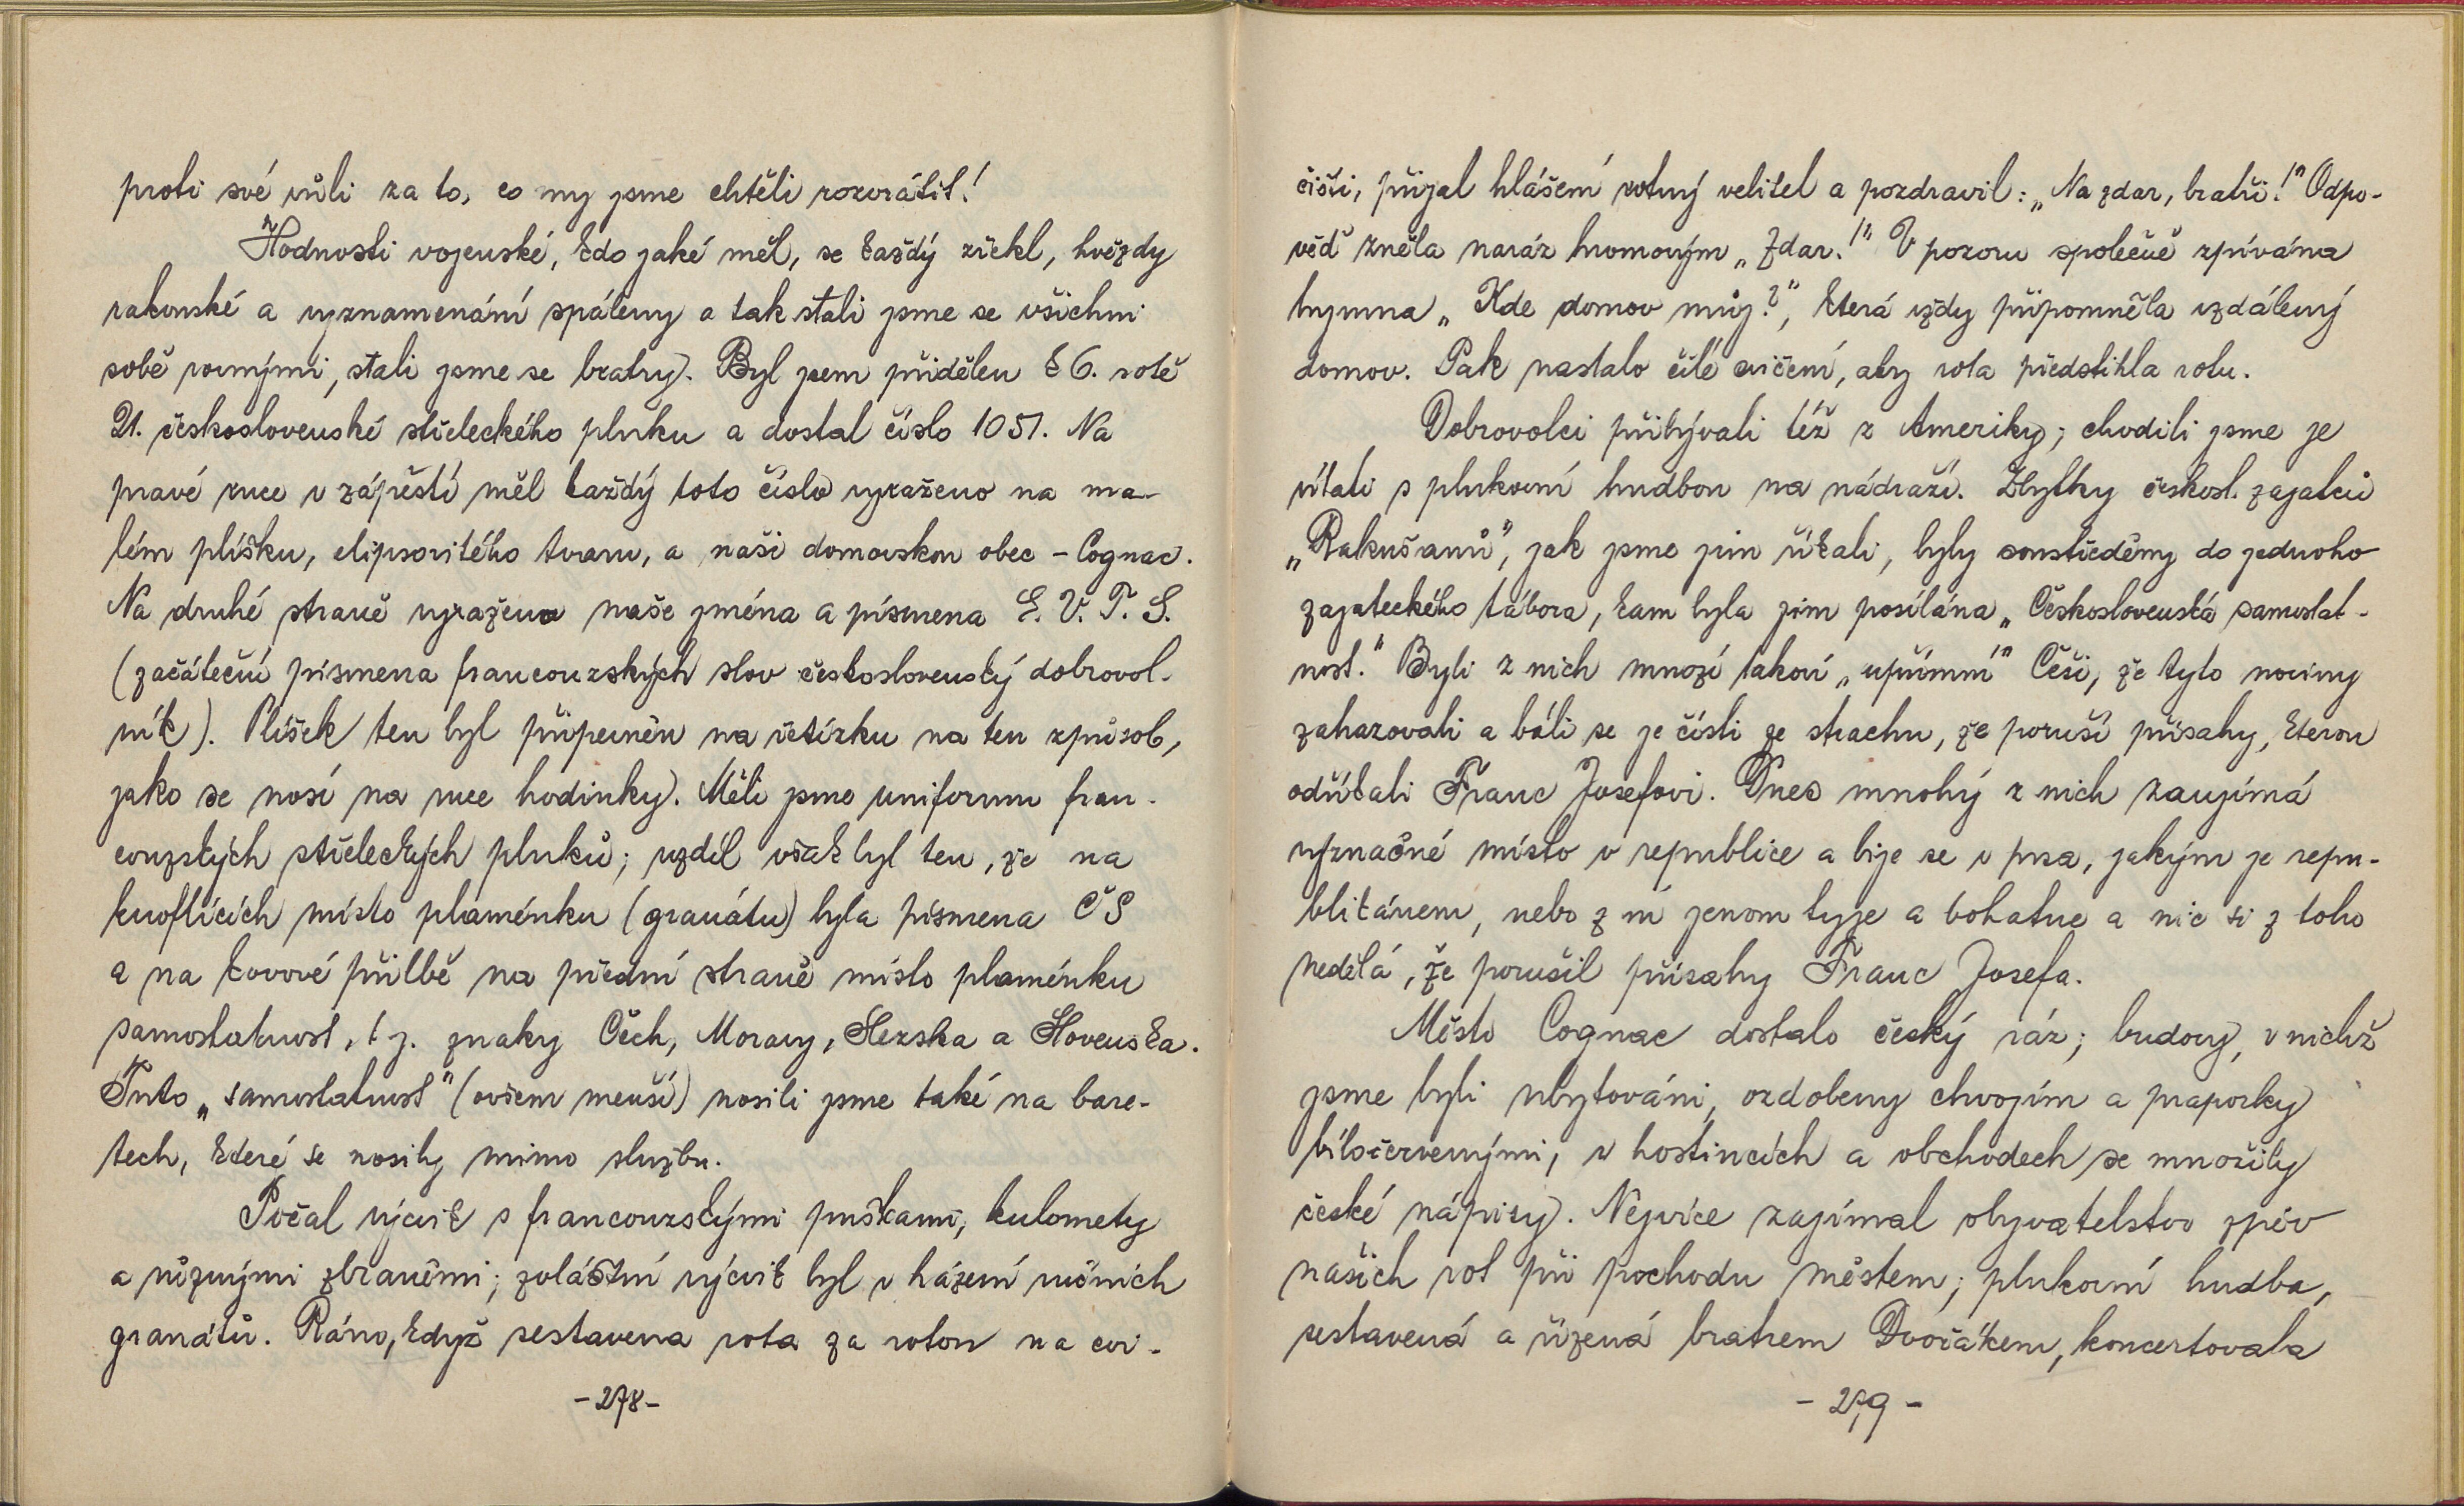 proti své vůli za to, co my jsme chtěli rozvrátit!
Hodnosti vojenské, kdo jaké měl, se každý zřekl, hvězdy
rakouské a vyznamenání spáleny a tak stali jsme se všichni
sobě rovnými, stali jsme se bratry. Byl jsem přidělen k 6. rotě
21. československé střeleckého pluku a dostal číslo 1051. Na
pravé ruce v zápěstí měl každý toto číslo vyraženo na ma-
lém plíšku, elipsovitého tvaru, a naši domovskou obec - Cognac.
Na druhé straně vyražena naše jména a písmena E. V. T. S.
(začáteční písmena francouzských slov československý dobrovol-
ník). Plíšek ten byl připevněn na řetízku na ten způsob,
jako se nosí na ruce hodinky. Měli jsme uniformu fran-
couzských střeleckých pluků; rozdíl však byl ten, že na
knoflících místo plaménku (granátu) byla písmena ČS
a na kovové přilbě na přední straně místo plaménku
samostatnost, t j. znaky Čech, Moravy, Slezska a Slovenska.
Tuto „samostatnost" (ovšem menší) nosili jsme také na bare-
tech, které se nosily mimo službu.
Počal výcvik s francouzskými puškami, kulomety
a různými zbraněmi; zvláštní výcvik byl v házení ručních
granátů. Ráno, když sestavena rota za rotou na cvi-
- 278 -
čišti, přijal hlášení rotný velitel a pozdravil: „Na zdar, bratři!" Odpo-
věď zněla naráz hromovým „Zdar!" V pozoru společně zpívána
hymna „Kde domov můj?", která vždy připomněla vzdálený
domov. Pak nastalo čilé cvičení, aby rota předstihla rotu.
Dobrovolci přibývali též z Ameriky; chodili jsme je
vítati s plukovní hudbou na nádraží. Zbytky českosl. zajatců
„Rakušanů", jak jsme jim říkali, byly soustředěny do jednoho
zajateckého tábora, kam byla jim posílána „Československá samostat-
nost." Byli z nich mnozí takoví „upřímní" Češi, že tyto noviny
zahazovali a báli se je čísti ze strachu, že poruší přísahy, kterou
odříkali Franc Josefovi. Dnes mnohý z nich zaujímá
význačné místo v republice a bije se v prsa, jakým je repu-
blikánem, nebo z ní jenom tyje a bohatne a nic si z toho
nedělá, že porušil přísahy Franc Josefa.
Město Cognac dostalo český ráz; budovy, v nichž
jsme byli ubytováni, ozdobeny chvojím a praporky
bíločervenými, v hostincích a obchodech se množily
české nápisy. Nejvíce zajímal obyvatelstvo zpěv
našich rot při pochodu městem; plukovní hudba,
sestavená a řízená bratrem Dvořákem, koncertovala
- 279 -